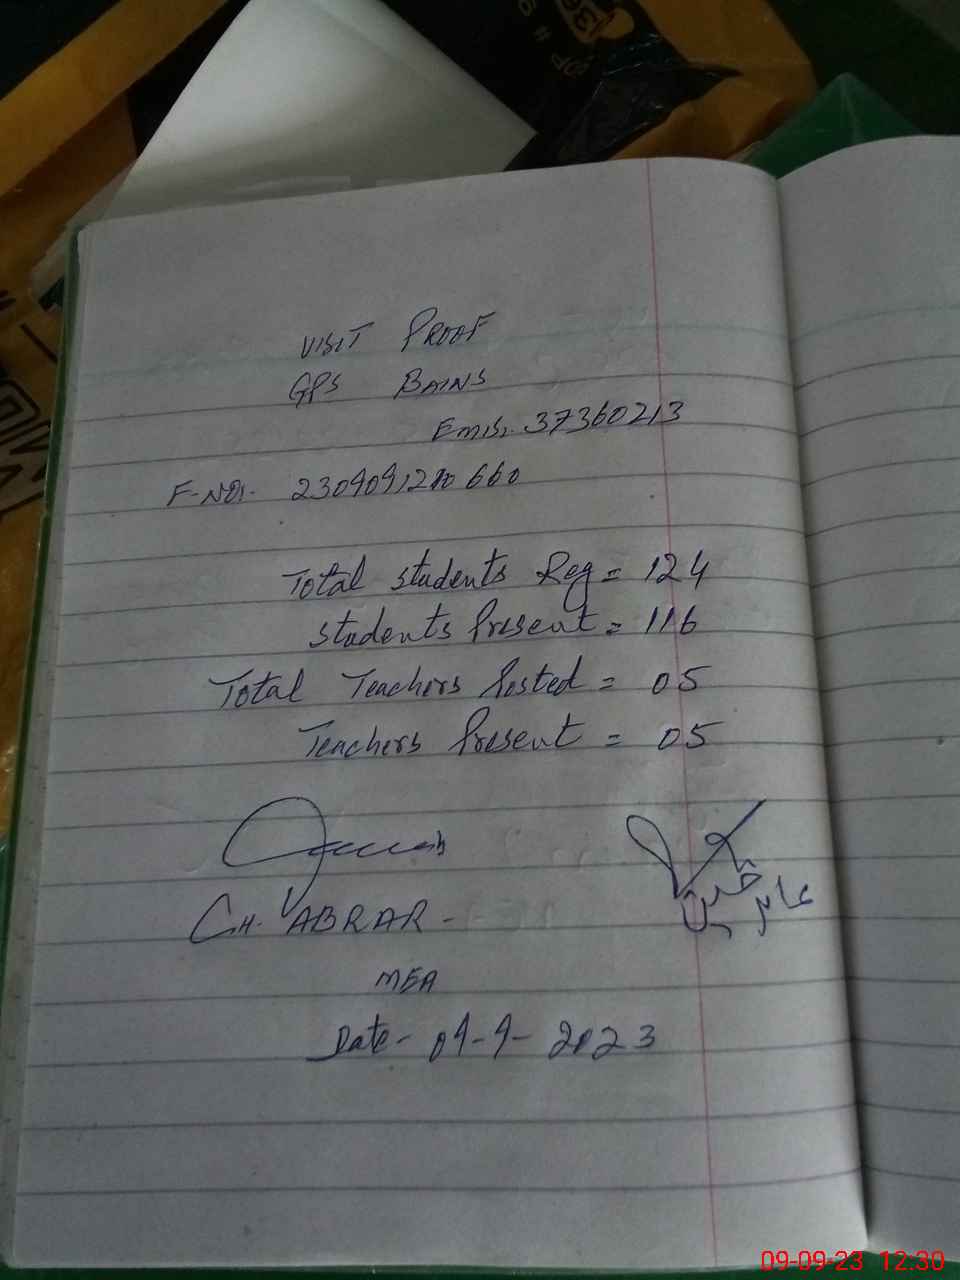 VISIT PROOF
GPS BAINS
Emis. 37360213
F-NO:- 2309091210660
Total students Reg = 124
Students Present = 116
Total Teachers Posted = 05
Teachers Present = 05
CH. ABRAR -
MEA
Date - 09-9-2023
09-09-23 12:30